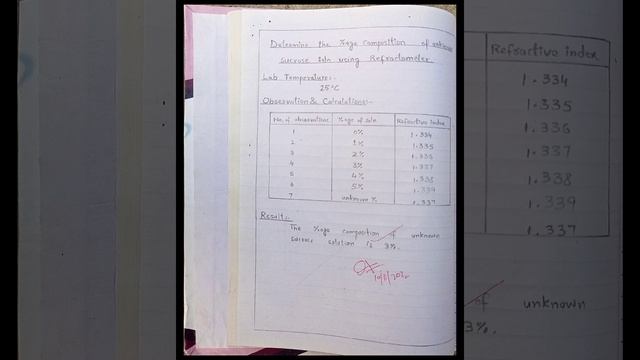 Determine the %age composition of unknown
sucrose soln using Refractometer.
Lab Temperature:-
25°C
Observation & Calculations:-
No. of observations %age of soln Refractive index
1 0% 1.334
2 1% 1.335
3 2% 1.336
4 3% 1.337
5 4% 1.338
6 5% 1.339
7 unknown % 1.337
Result:-
The %age composition of unknown
sucrose solution is 3%.
Refractive index
1.334
1.335
1.336
1.337
1.338
1.339
1.337
of unknown
3%.